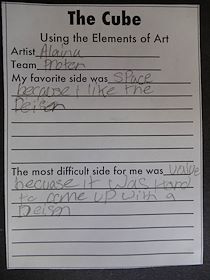 The Cube
Using the Elements of Art
Artist Alaina
Team Proten
My favorite side was space
because I like the
Deisen
The most difficult side for me was value
becuase it was hard
to come up with a
Deisen